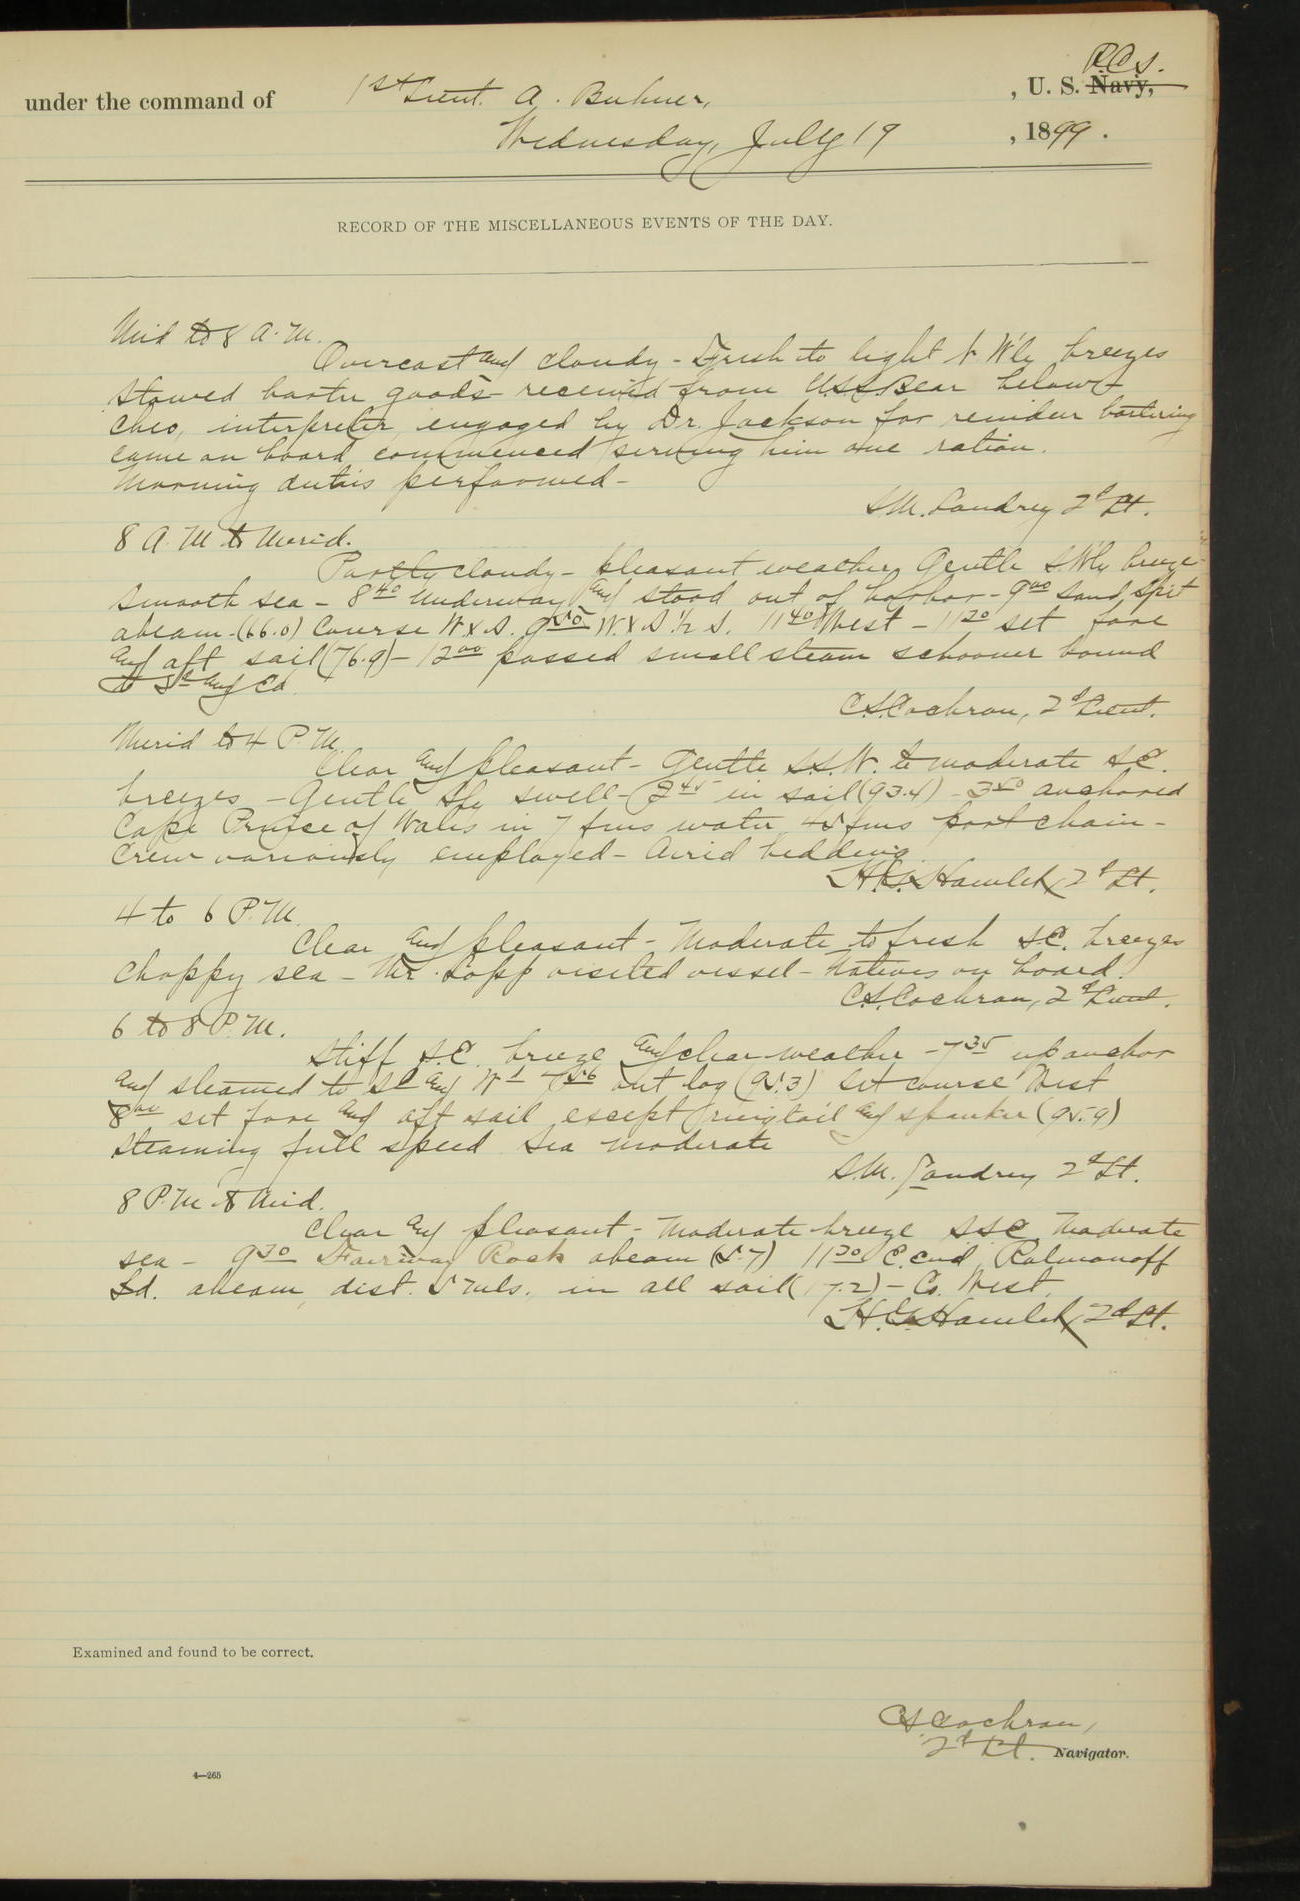 R.C.S.
under the command of 1st Lieut. A. Buhner, , U. S. Navy,
Wednesday, July 19 , 1899 .
RECORD OF THE MISCELLANEOUS EVENTS OF THE DAY.
Mid to 8 A.M.
Overcast and cloudy - Fresh to light N Wly breezes
Stowed barter goods received from USS Bear below -
Cheo, interpreter, engaged by Dr. Jackson for reindeer bartering
came on board commenced serving him one ration.
Morning duties performed -
S.M. Landrey 2d Lt.
8 A.M to Merid.
Partly cloudy - pleasant weather Gentle S.Wly breeze
Smooth sea - 8 40 Underway and stood out of harbor - 9 00 Sand Spit
abeam - (66.0) Course W.x.S. 9 50 W.x.S ½ S. 11 40 West - 11 20 set fore
and aft sail (76.9) - 12 00 passed small steam schooner bound
to Sd and Ed.
C.S. Cochran, 2d Lieut.
Merid to 4 P.M.
Clear and pleasant - Gentle S.S.W. to moderate S.E.
breezes - Gentle Sly swell - 2 45 in sail (93.4) - 3 50 anchored
Cape Prince of Wales in 7 fms water 45 fms port chain -
Crew variously employed - Aired bedding
H.G. Hamlet 2d Lt.
4 to 6 P.M.
Clear and pleasant - Moderate to fresh S.E. breezes
Choppy sea - Mr. Lopp visited vessel - Natives on board.
C.S. Cochran, 2d Lieut.
6 to 8 P.M.
Stiff S.E. breeze and clear weather - 7 35 up anchor
and steamed to Sd and Wd 7 56 out log (95.3) Set course West
8 00 set fore and aft sail except ringtail and spanker (95.9)
Steaming full speed Sea moderate
S.M. Landrey 2d Lt.
8 P.M to Mid.
Clear and pleasant - Moderate breeze S.S.E. Moderate
sea - 9 30 Fairway Rock abeam (5.7) 11 20 E. end Ratmanoff
Id. abeam, dist. 5 mls. in all sail (17.2) - Co. West.
H.G. Hamlet 2d Lt.
Examined and found to be correct.
C.S. Cochran,
2d Lt. Navigator.
4—265